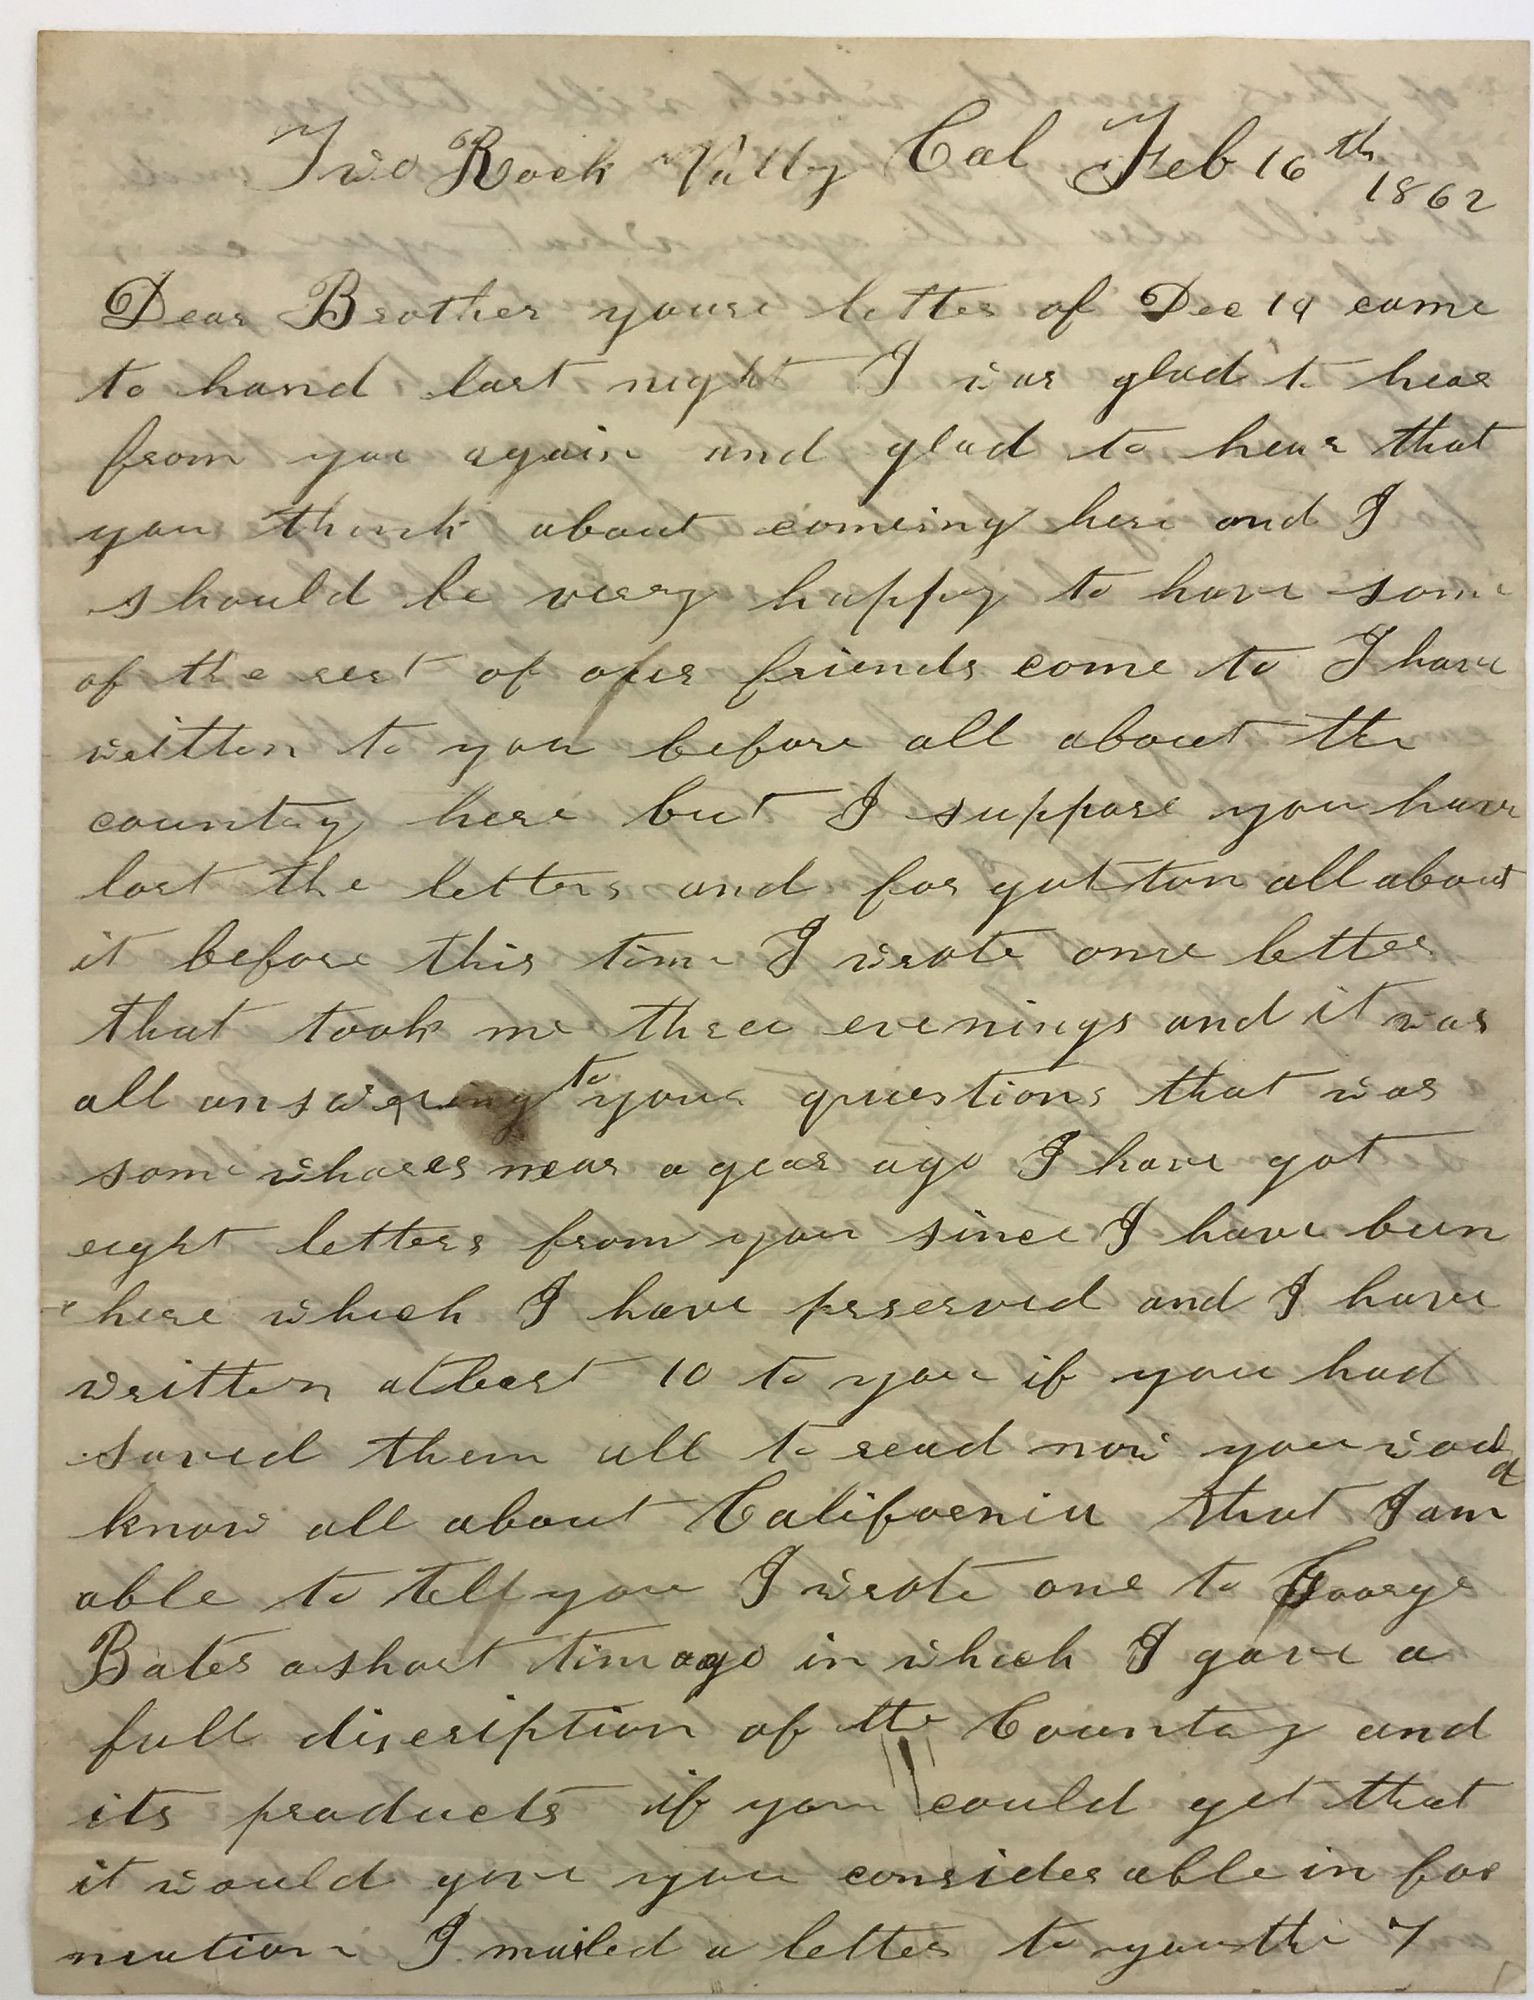 Two Rock Vally Cal Feb 16th 1862
Dear Brother youre letter of Dec 19 came
to hand last night I was glad to hear
from you again and glad to hear that
you think about comeing here and I
should be very happy to have some
of the rest of ofur friends come to I have
written to you before all about the
country here but I suppose you have
lost the letters and for gotton all about
it before this time I wrote one letter
that took me three evenings and it was
all answering to your questions that was
some whares near a year ago I have got
eight letters from you since I have been
here which I have preserved and I have
written atleast 10 to you if you had
saved them all to read now you would
know all about California that I am
able to tell you I wrote one to Goorge
Bates ashort tim ago in which I gave a
full discription of the Country and
its products if you could get that
it would give you considerable in for
mation I mailed a letter to you the 7